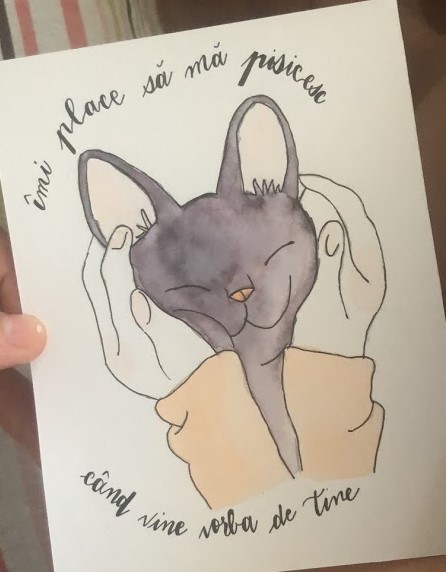 îmi place să mă pisicesc
când vine vorba de tine